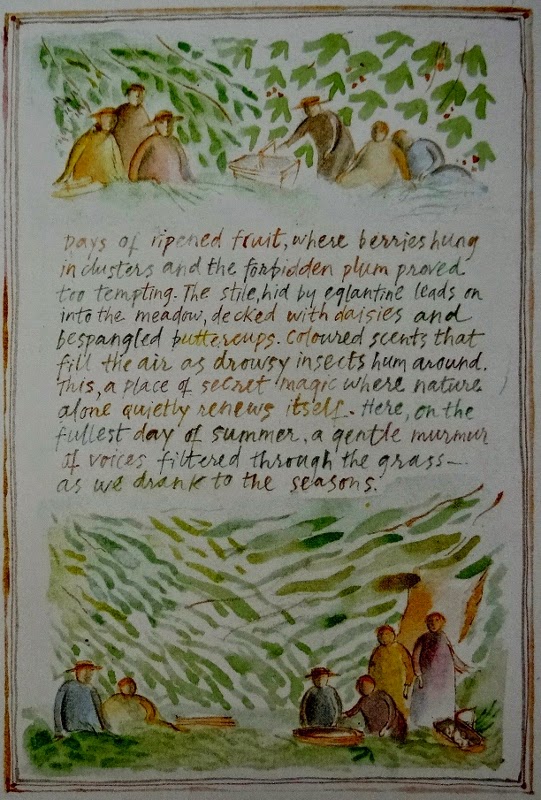 Days of ripened fruit, where berries hung
in clusters and the forbidden plum proved
too tempting. The stile, hid by eglantine leads on
into the meadow, decked with daisies and
bespangled buttercups. Coloured scents that
fill the air as drowsy insects hum around.
This, a place of secret magic where nature
alone quietly renews itself. Here, on the
fullest day of summer, a gentle murmur
of voices filtered through the grass—
as we drank to the seasons.